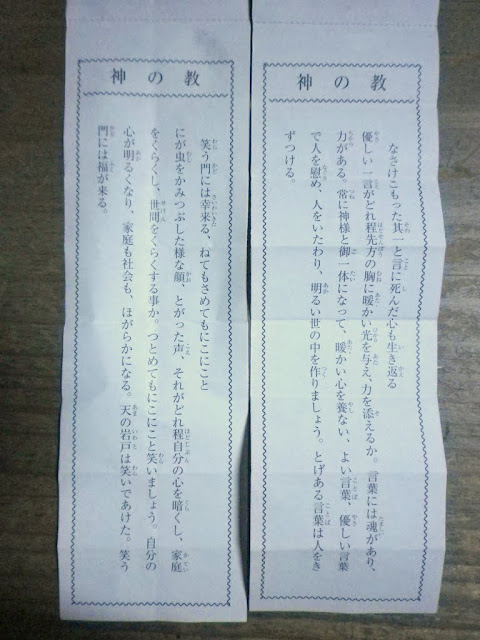 神の教
なさけこもった其一と言に死んだ心も生き返る
優しい一言がどれ程先方の胸に暖かい光を与え、力を添えるか。言葉には魂があり、
力がある。常に神様と御一体になって、暖かい心を養ない、よい言葉、優しい言葉
で人を慰め、人をいたわり、明るい世の中を作りましょう。とげある言葉は人をき
ずつける。
神の教
笑う門には幸来る、ねてもさめてもにこにこと
にが虫をかみつぶした様な顔、とがった声、それがどれ程自分の心を暗くし、家庭
をくらくし、世間をくらくする事か。つとめてもにこにこと笑いましょう。自分の
心が明るくなり、家庭も社会も、ほがらかになる。天の岩戸は笑いであけた。笑う
門には福が来る。